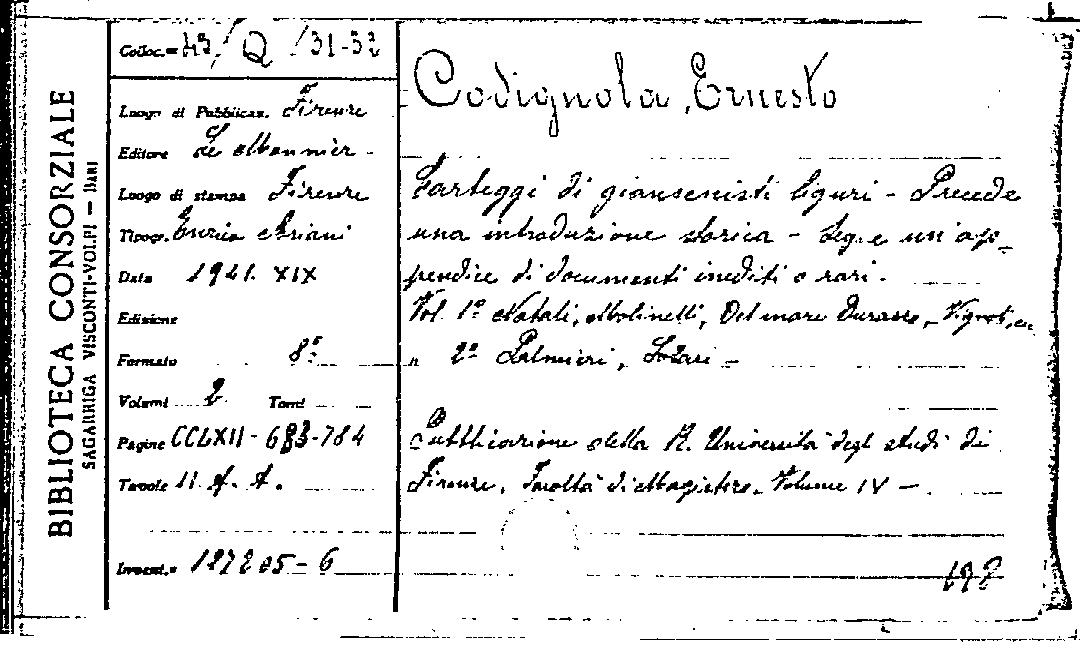 BIBLIOTECA CONSORZIALE
SAGARRIGA VISCONTI-VOLPI — BARI
Colloc.= 43/Q/31-32
Luogo di Pubblicaz. Firenze
Editore Le Monnier -
Luogo di stampa Firenze
Tipogr. Enrico Ariani
Data 1941. XIX
Edizione
Formato 8°
Volumi 2 Tomi
Pagine CCLXII - 683-784
Tavole 11 f. t.
Invent.=
Codignola, Ernesto
Carteggi di giansenisti liguri - Precede
una introduzione storica - Segue un'ap-
pendice di documenti inediti o rari.
Vol. 1° Natali, Molinelli, Del mare Durazzo, Vignoli, ecc
" 2° Palmieri, Solari -
Pubblicazione della R. Università degli studi di
Firenze. Facoltà di Magistero. Volume IV -